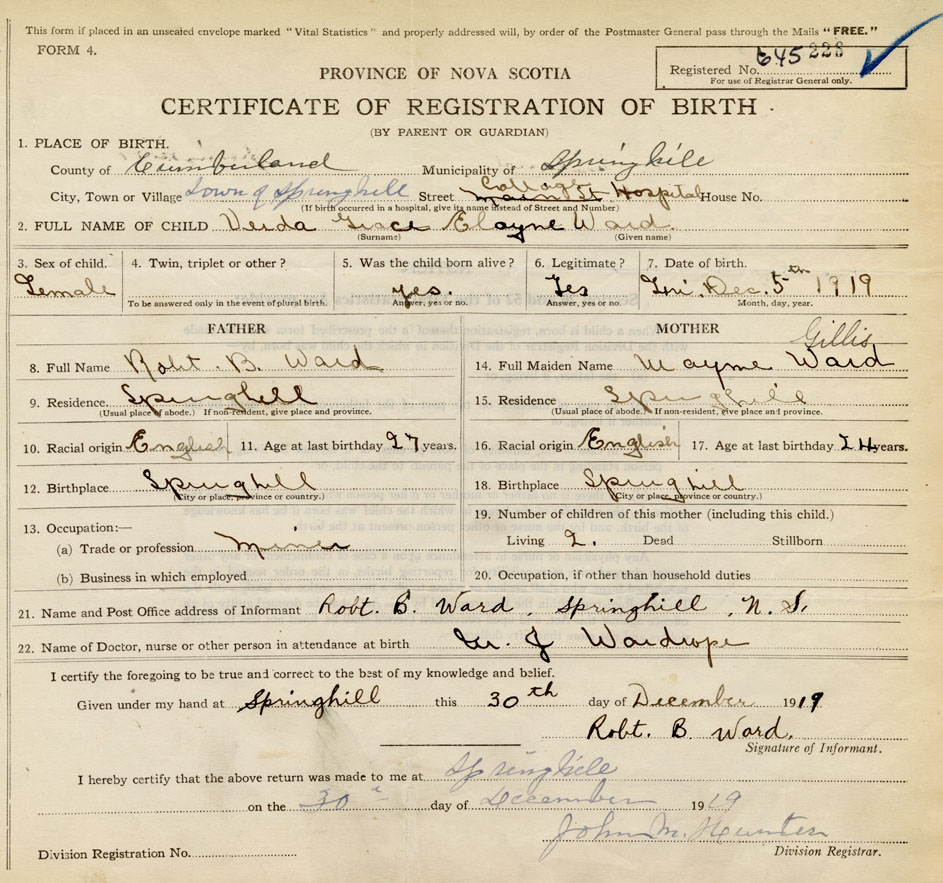 This form if placed in an unsealed envelope marked "Vital Statistics" and properly addressed will, by order of the Postmaster General pass through the Mails "FREE."
FORM 4.
Registered No. 645 223
For use of Registrar General only.
PROVINCE OF NOVA SCOTIA
CERTIFICATE OF REGISTRATION OF BIRTH
(BY PARENT OR GUARDIAN)
1. PLACE OF BIRTH.
County of Cumberland Municipality of Springhill
City, Town or Village Town of Springhill Street Cottage Main St Hospital House No.
(If birth occurred in a hospital, give its name instead of Street and Number)
2. FULL NAME OF CHILD Verda Grace Elayne Ward
(Surname) (Given name)
3. Sex of child. 4. Twin, triplet or other ? 5. Was the child born alive ? 6. Legitimate ? 7. Date of birth.
Female yes. Yes Fri. Dec. 5th 1919
To be answered only in the event of plural birth. Answer, yes or no. Answer, yes or no. Month, day, year.
FATHER MOTHER
Gillis
8. Full Name Robt. B. Ward 14. Full Maiden Name Mayme Ward
9. Residence Springhill 15. Residence Springhill
(Usual place of abode.) If non-resident, give place and province. (Usual place of abode.) If non-resident, give place and province.
10. Racial origin English 11. Age at last birthday 27 years. 16. Racial origin English 17. Age at last birthday 24 years.
12. Birthplace Springhill 18. Birthplace Springhill
(City or place, province or country.) (City or place, province or country.)
13. Occupation:— 19. Number of children of this mother (including this child.)
(a) Trade or profession Miner Living 2. Dead Stillborn
(b) Business in which employed 20. Occupation, if other than household duties
21. Name and Post Office address of Informant Robt. B. Ward, Springhill, N. S.
22. Name of Doctor, nurse or other person in attendance at birth J Wardrope
I certify the foregoing to be true and correct to the best of my knowledge and belief.
Given under my hand at Springhill this 30th day of December 1919
Robt. B. Ward.
Signature of Informant.
I hereby certify that the above return was made to me at Springhill
on the 30th day of December 1919
John M. Hunter
Division Registration No. Division Registrar.